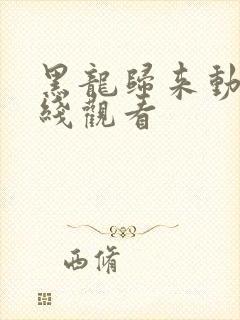 黑龍歸來動
綫觀看
西脩